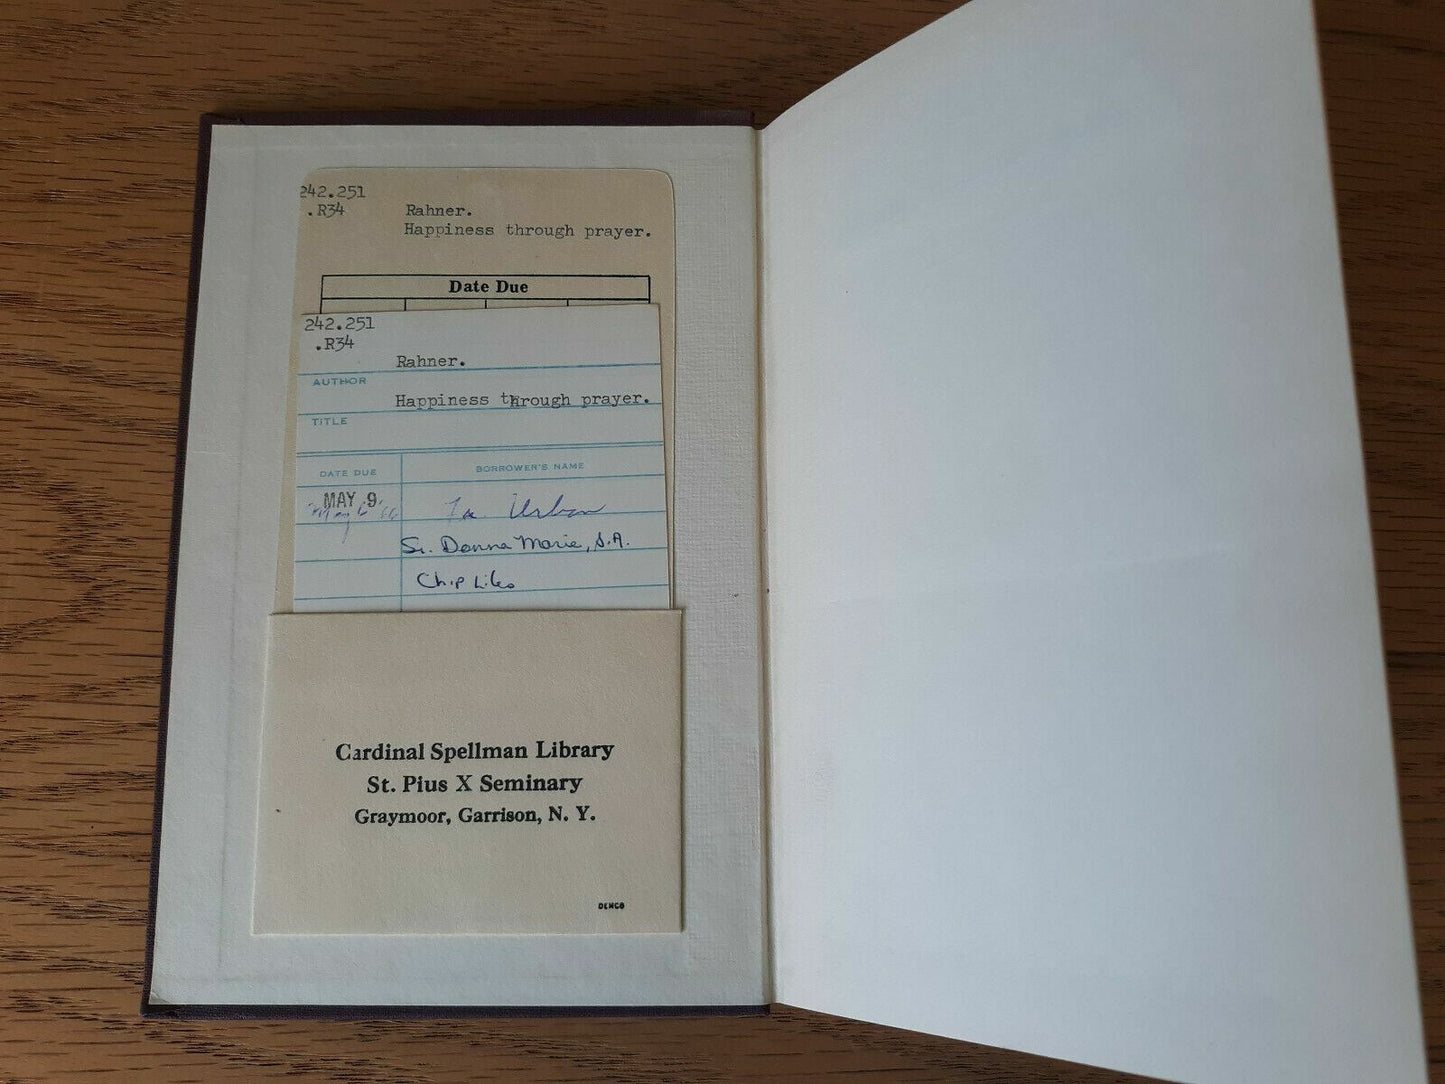 242.251
.R34 Rahner.
Happiness through prayer.
Date Due
242.251
.R34
Rahner.
AUTHOR
Happiness through prayer.
TITLE
DATE DUE BORROWER'S NAME
MAY 9
Urban
Sr. Donna Marie, S.A.
Chip Liles
Cardinal Spellman Library
St. Pius X Seminary
Graymoor, Garrison, N. Y.
DEMCO